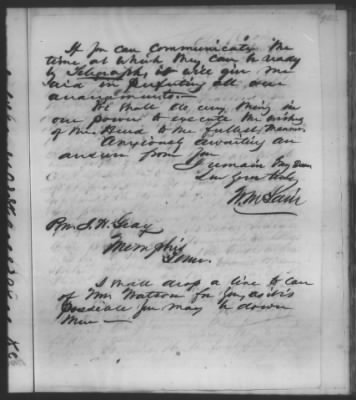 If you can communicate the
time at which they can be ready
by Telegraph, it will give me
aid in perfecting all our
arrangements.
We shall do every thing in
our power to execute the wishes
of the Dead to the fullest measure.
Anxiously awaiting an
answer from you
I remain My Dear
Sir Yours truly
Wm
H. Gray
Memphis
Tenn.
I shall drop a line to care
of Mr Watson for you, as it is
possible you may be down
there —